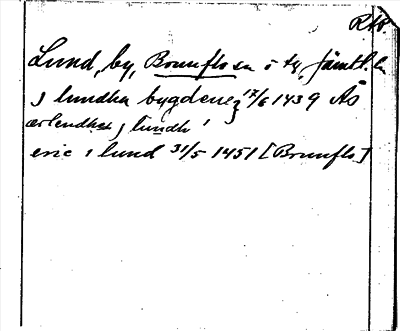 RAp.
Lund, by, Brunflo sn o tg, Jämtl. l.
J lundha bygdene 17/6 1439 Ås
ærlendhæ j lundh
eric i lund 31/5 1451 [Brunflo]